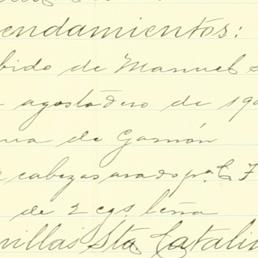 endamientos:
bido de Manuel
agostadero de 19
de Gamón
cabezas arado p. C. F
de 2 cgs leña
villas Sta Catali